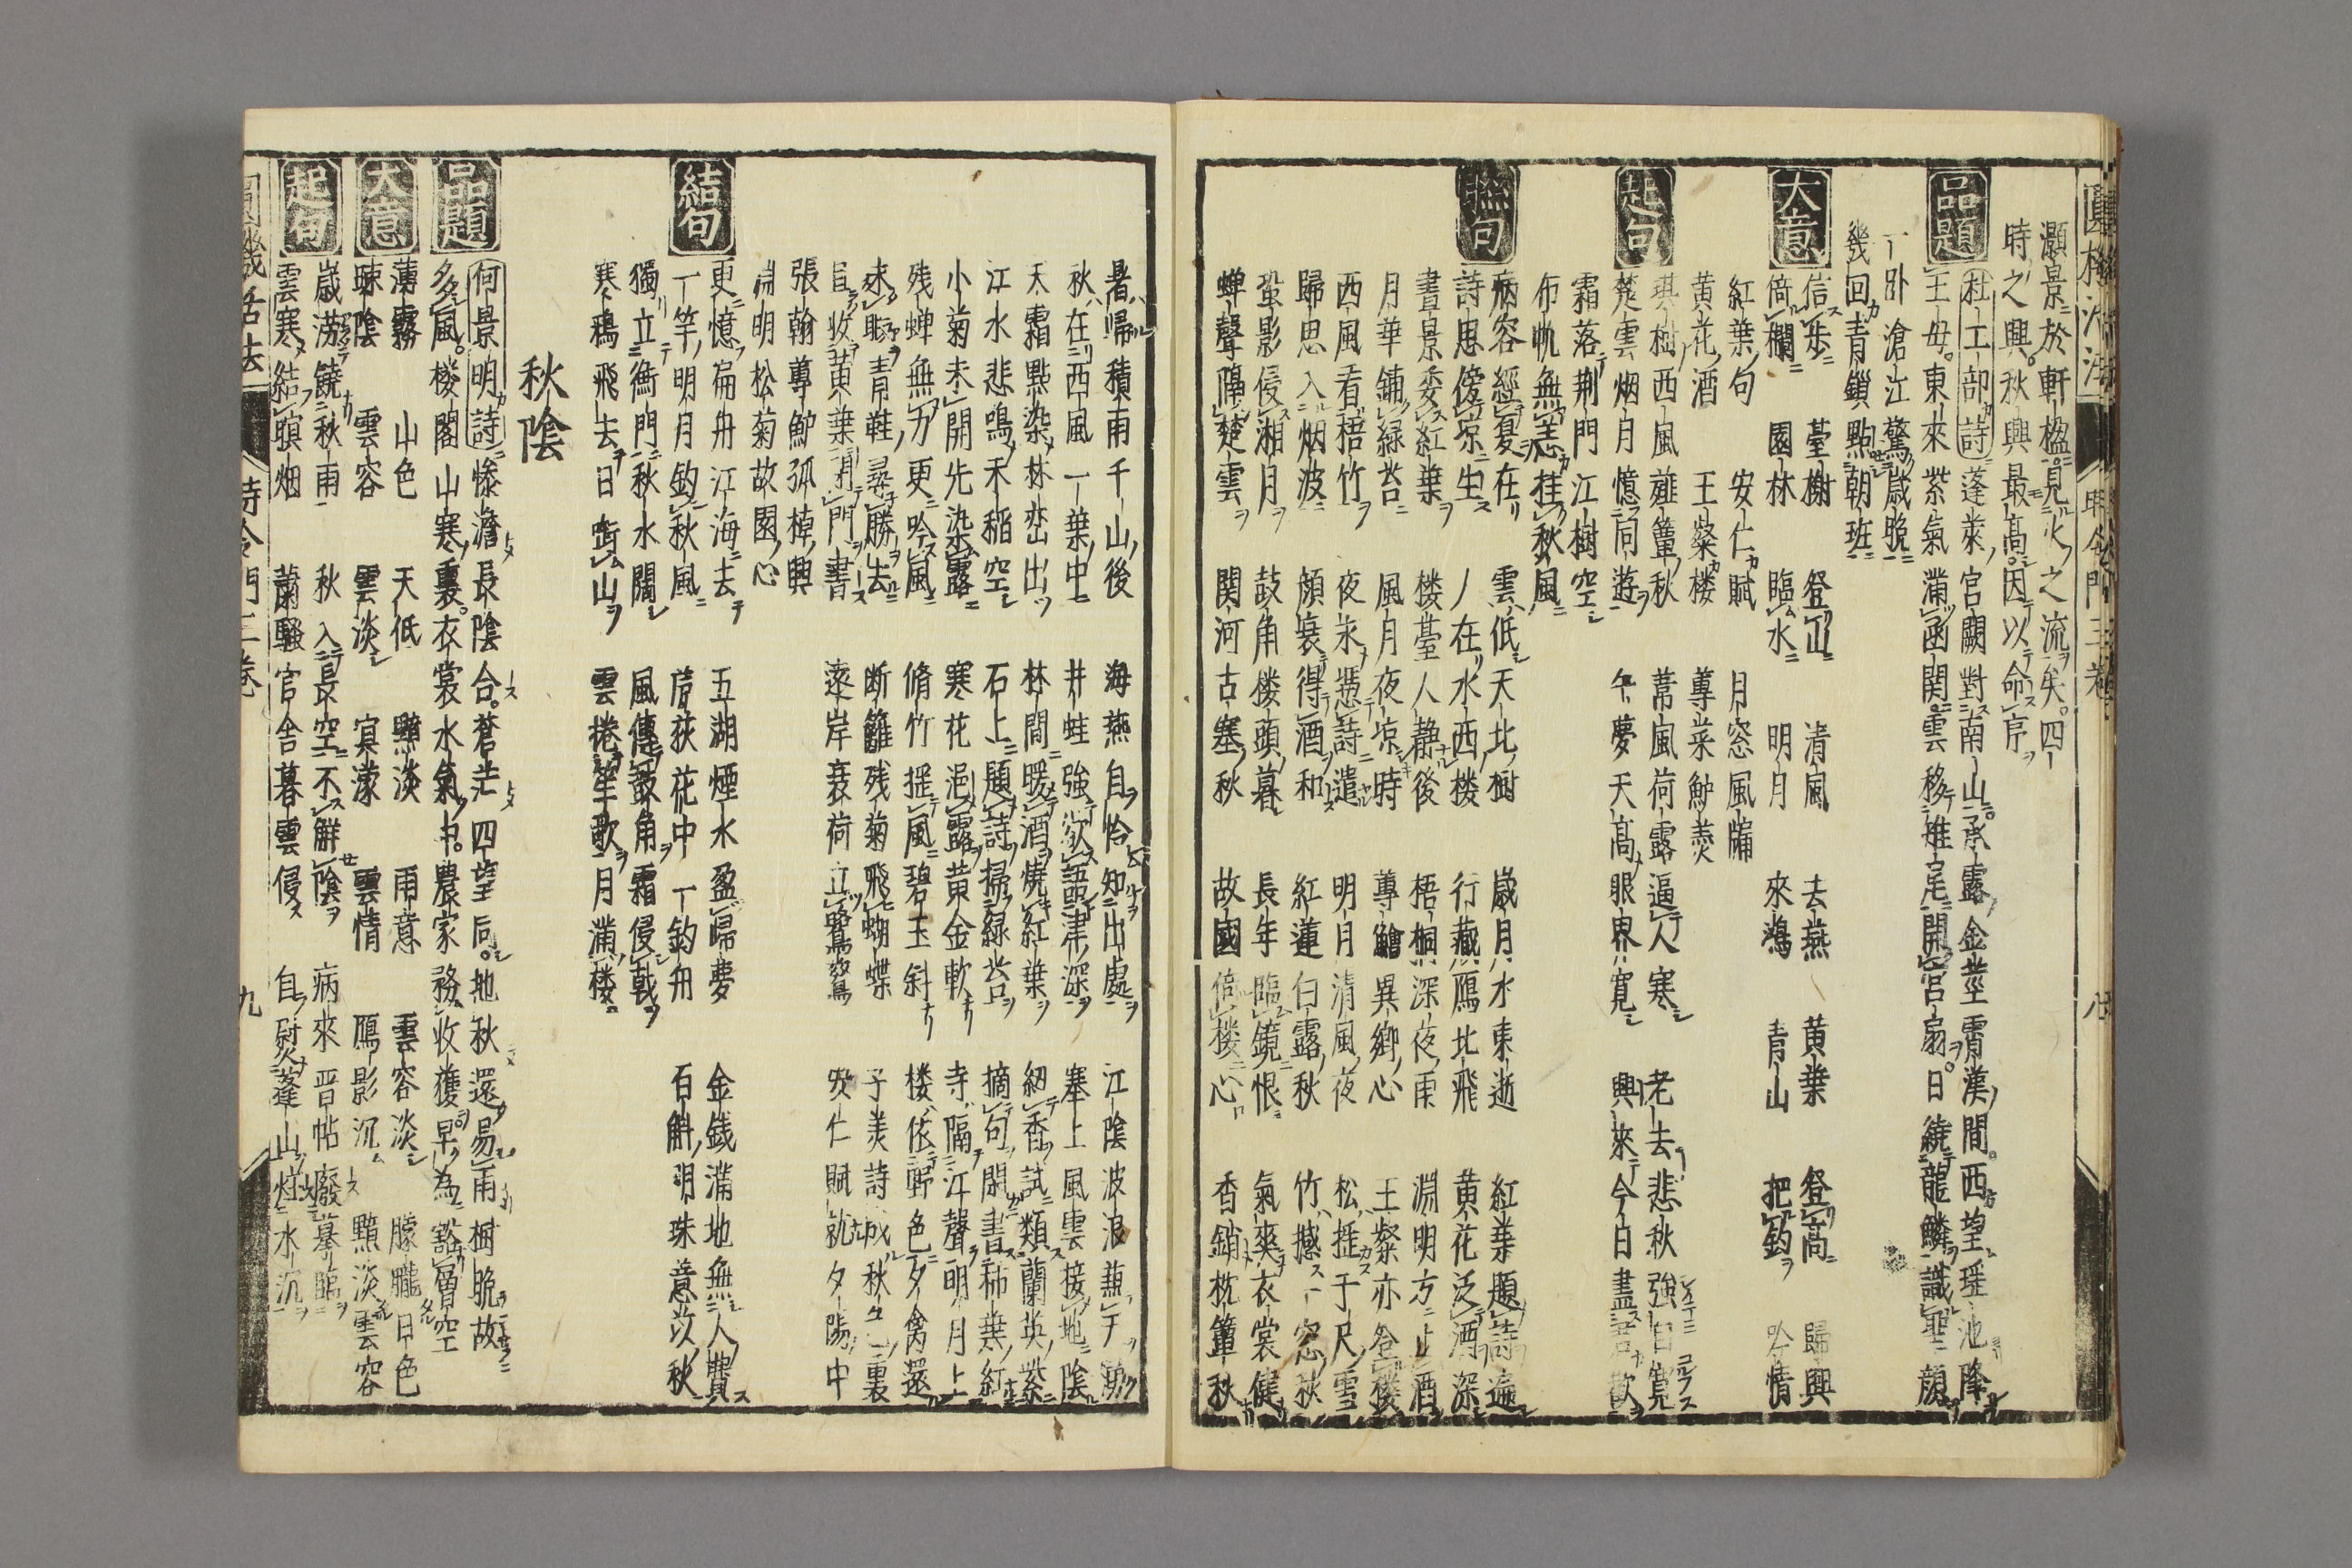 灝景於軒楹見火之流矣四
時之興秋興最高因以命序
品題
杜工部詩 蓬萊宮闕對南山承露金莖霄漢間西望瑶池降
王母東來紫氣滿函関雲移雉尾開宮扇日繞龍鱗識聖顔
一卧滄江驚歳晩
幾回青鎖點朝班
大意
信歩 臺榭 登山 清風 去燕 黄葉 登高 歸興
倚欄 園林 臨水 明月 來鴻 青山 把釣 吟情
紅葉句 安仁賦 月窓風牖
黄花酒 王粲楼 蓴菜鱸羹
起句
琪樹西風薤簟秋 楚雲烟月憶同遊
霜落荆門江樹空
布帆無恙挂秋風
葦風荷露逼人寒 老去悲秋強自寛
午夢天高眼界寛 興來今日盡君歡
聯句
病容經夏在 雲低天北樹 歳月水東逝 紅葉題詩遍
詩思傍凉生 人在水西楼 行藏鴈北飛 黄花泛酒深
晝景委紅葉 楼臺人靜後 梧桐深夜雨 淵明方止酒
月華鋪緑苔 風月夜凉時 蓴鱠異鄉心 王粲亦登楼
西風看梧竹 夜永憑詩遣 明月清風夜 松摧于尺雪
歸思入烟波 顔衰得酒和 紅蓮白露秋 竹撼一窓秋
蛩影侵湘月 鼓角楼頭暮 長年臨鏡恨 氣爽衣裳健
蝉聲隔楚雲 関河古塞秋 故國倚楼心 香銷枕簟秋
暑歸積雨千山後 海燕自恰知出處 江陰波浪蕪
秋在西風一葉中 井蛙強欲語津深 塞上風雲接地陰
天霜點染林巒出 林間暖酒燒紅葉 紉香試類蘭英紫
江水悲鳴禾稲空 石上題詩掃緑苔 摘句閑書柿葉紅
小菊未開先染露 寒花浥露黄金軟 寺隔江聲明月上
残蝉無力更吟風 脩竹摇風碧玉斜 楼依野色夕禽還
青鞋尋勝去 断籬残菊飛蝴蝶 子美詩成秋裏
黄葉閉門書 遠岸衰荷立鷺鷥 安仁賦就夕陽中
張翰蓴鱸孤棹興
淵明松菊故園心
結句
更憶扁舟江海去 五湖煙水盈歸夢 金銭滿地無人費
一竿明月釣秋風 蘆荻花中一釣舟 百斛明珠意苡秋
獨立衡門秋水闊 風傳鼓角霜侵戟
寒鴉飛去日銜山 雲捲笙歌月滿楼
秋陰
品題
何景明詩 惨澹長陰合蒼茫四望同地秋還易雨樹晩故
多風楼閣山寒裏衣裳水氣中農家務收獲早為豁層空
大意
薄霧 山色 天低 黯淡 雨意 雲容淡 朦朧日色
疎陰 雲容 雲淡 溟濛 雲情 鴈影沉 黯淡雲容
起句
歳澇饒秋雨 秋入長空不解陰 病來晋帖廢摹臨
雲寒結暝烟 蕭騒官舎暮雲侵 自熨蓬山炷水沉
圓機活法 時令門三巻 九